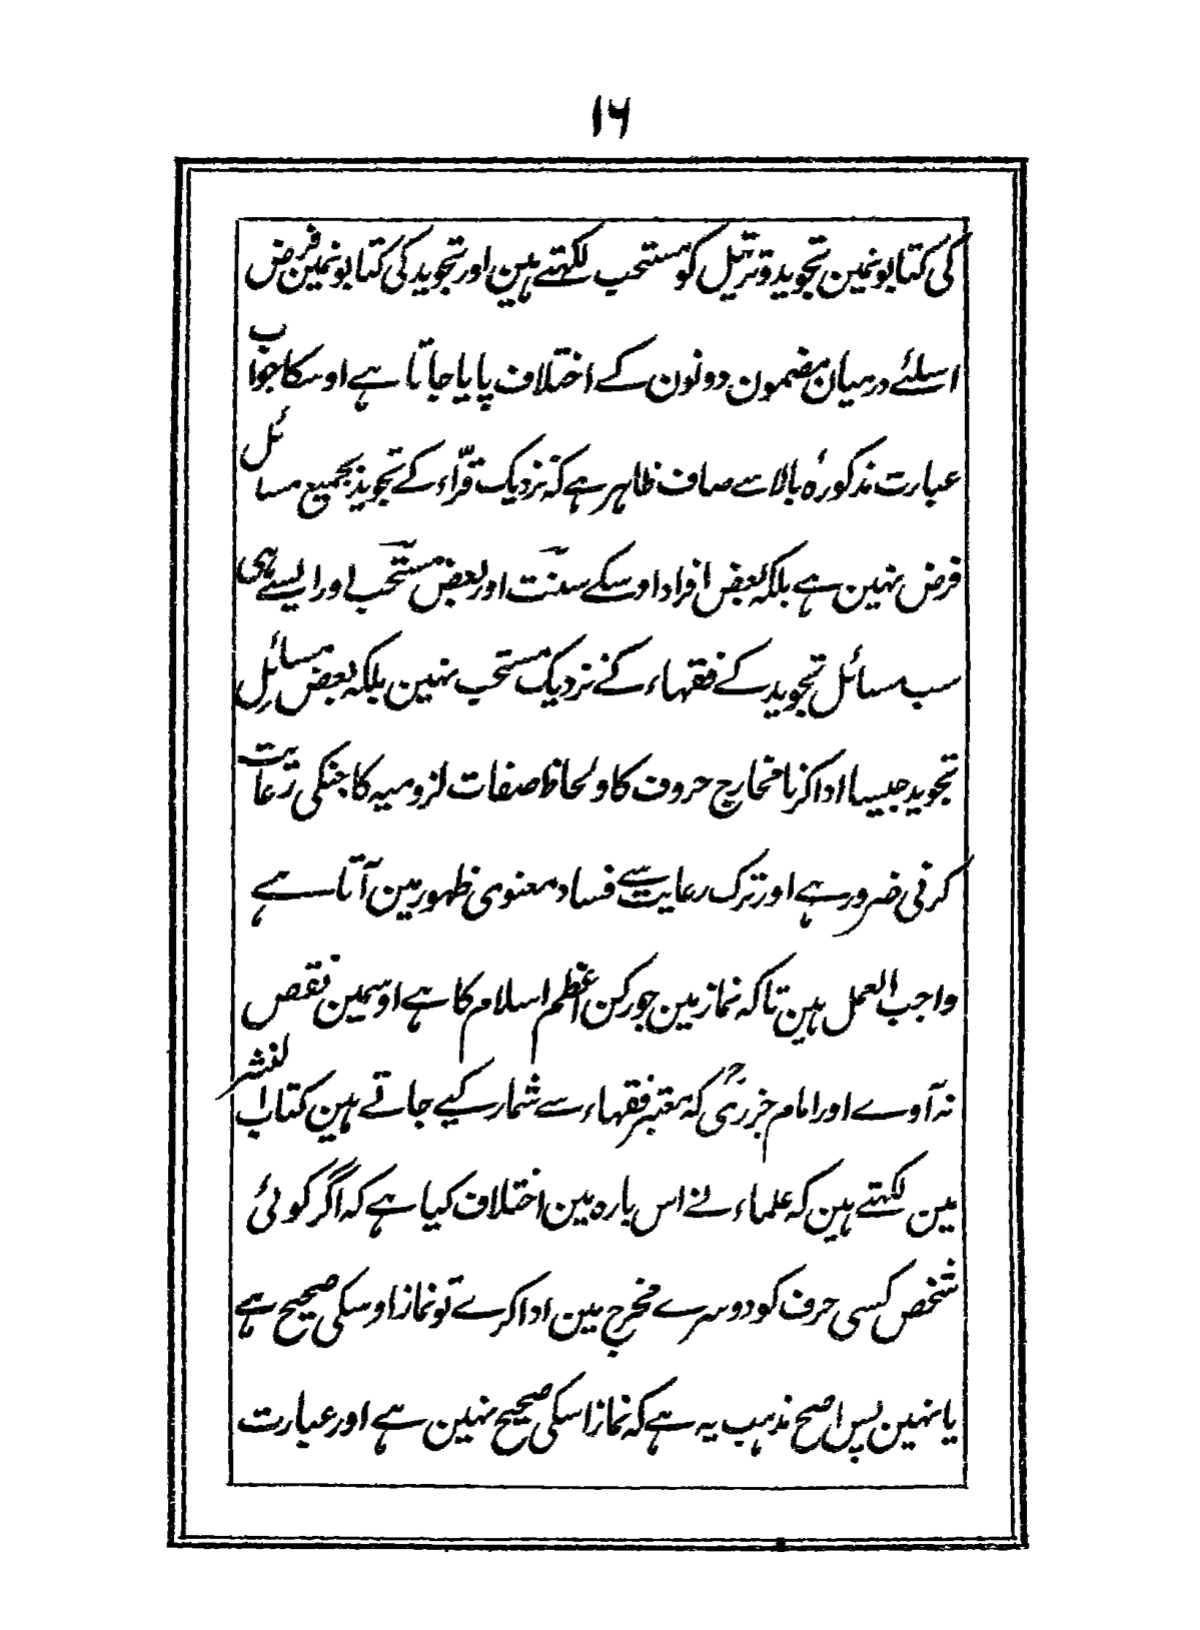 ۱۶
کی کتابونمین تجوید و ترتیل کو مستحب لکھتے ہین اور تجوید کی کتابونمین فرض
اسلئے درمیان مضمون دونون کے اختلاف پایا جاتا ہے اوسکا جواب
عبارت مذکورۂ بالا سے صاف ظاہر ہے کہ نزدیک قرّاء کے تجوید بجمیع مسائل
فرض نہین ہے بلکہ بعض افراد اوسکے سنت اور بعض مستحب اور ایسے ہی
سب مسائل تجوید کے فقہاء کے نزدیک مستحب نہین بلکہ بعض مسائلِ
تجوید جیسا ادا کرنا مخارج حروف کا و لحاظ صفات لزومیہ کا جنکی رعایت
کرنی ضرور ہے اور ترک رعایت سے فساد معنوی ظہور مین آتا ہے
واجب العمل ہین تاکہ نماز مین جو رکن اعظم اسلام کا ہے اوسمین نقص
نہ آوے اور امام جزریؒ کہ معتبر فقہاء سے شمار کیے جاتے ہین کتاب النشر
مین لکھتے ہین کہ علماء نے اس بارہ مین اختلاف کیا ہے کہ اگر کوئی
شخص کسی حرف کو دوسرے مخرج مین ادا کرے تو نماز اوسکی صحیح ہے
یا نہین پس اصح مذہب یہ ہے کہ نماز اسکی صحیح نہین ہے اور عبارت